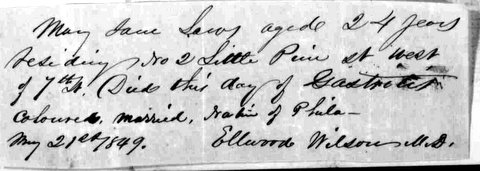 Mary Jane Laws aged 24 years
residing No 2 Little Pine st. west
of 7th st. Died this day of Gastritis
coloured, married, Nativ of Phila-
May 21st 1849. Ellwood Wilson M.D.